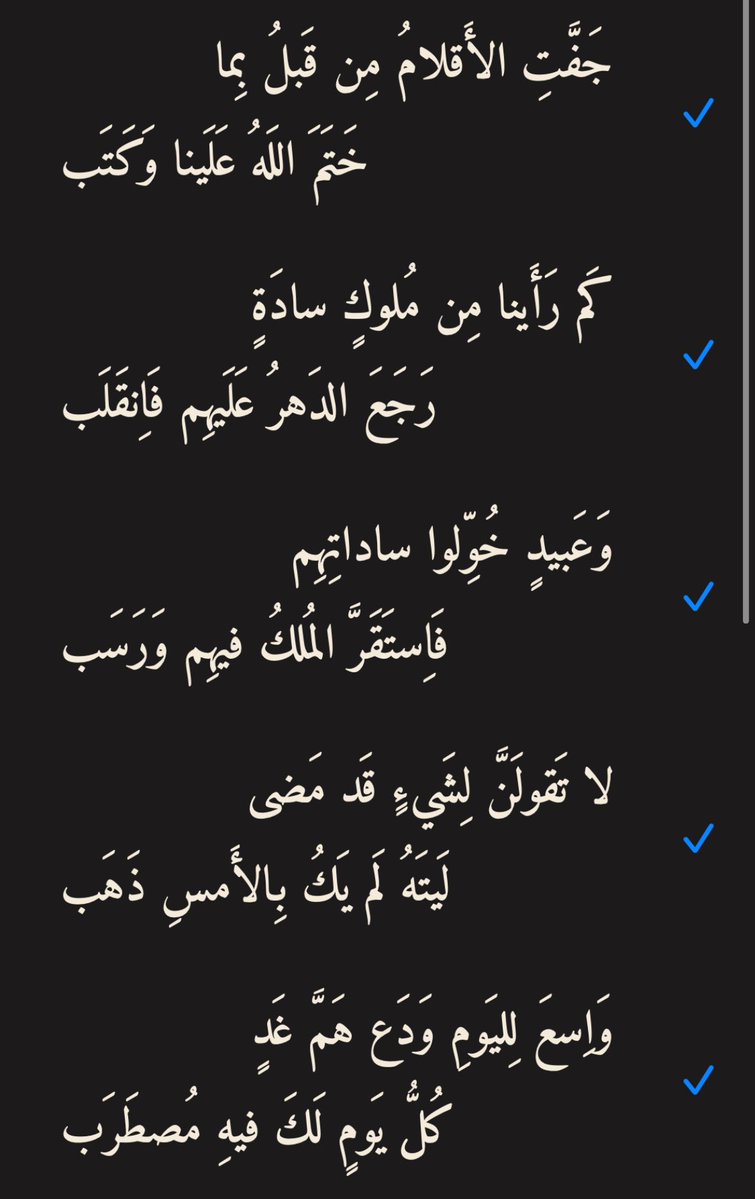 جَفَّتِ الأَقلامُ مِن قَبلُ بِما
خَتَمَ اللَهُ عَلَينا وَكَتَب
كَم رَأَينا مِن مُلوكٍ سادَةٍ
رَجَعَ الدَهرُ عَلَيهِم فَاِنقَلَب
وَعَبيدٍ خُوِّلوا ساداتِهِم
فَاِستَقَرَّ المُلكُ فيهِم وَرَسَب
لا تَقولَنَّ لِشَيءٍ قَد مَضى
لَيتَهُ لَم يَكُ بِالأَمسِ ذَهَب
وَاِسعَ لِليَومِ وَدَع هَمَّ غَدٍ
كُلُّ يَومٍ لَكَ فيهِ مُصطَرَب